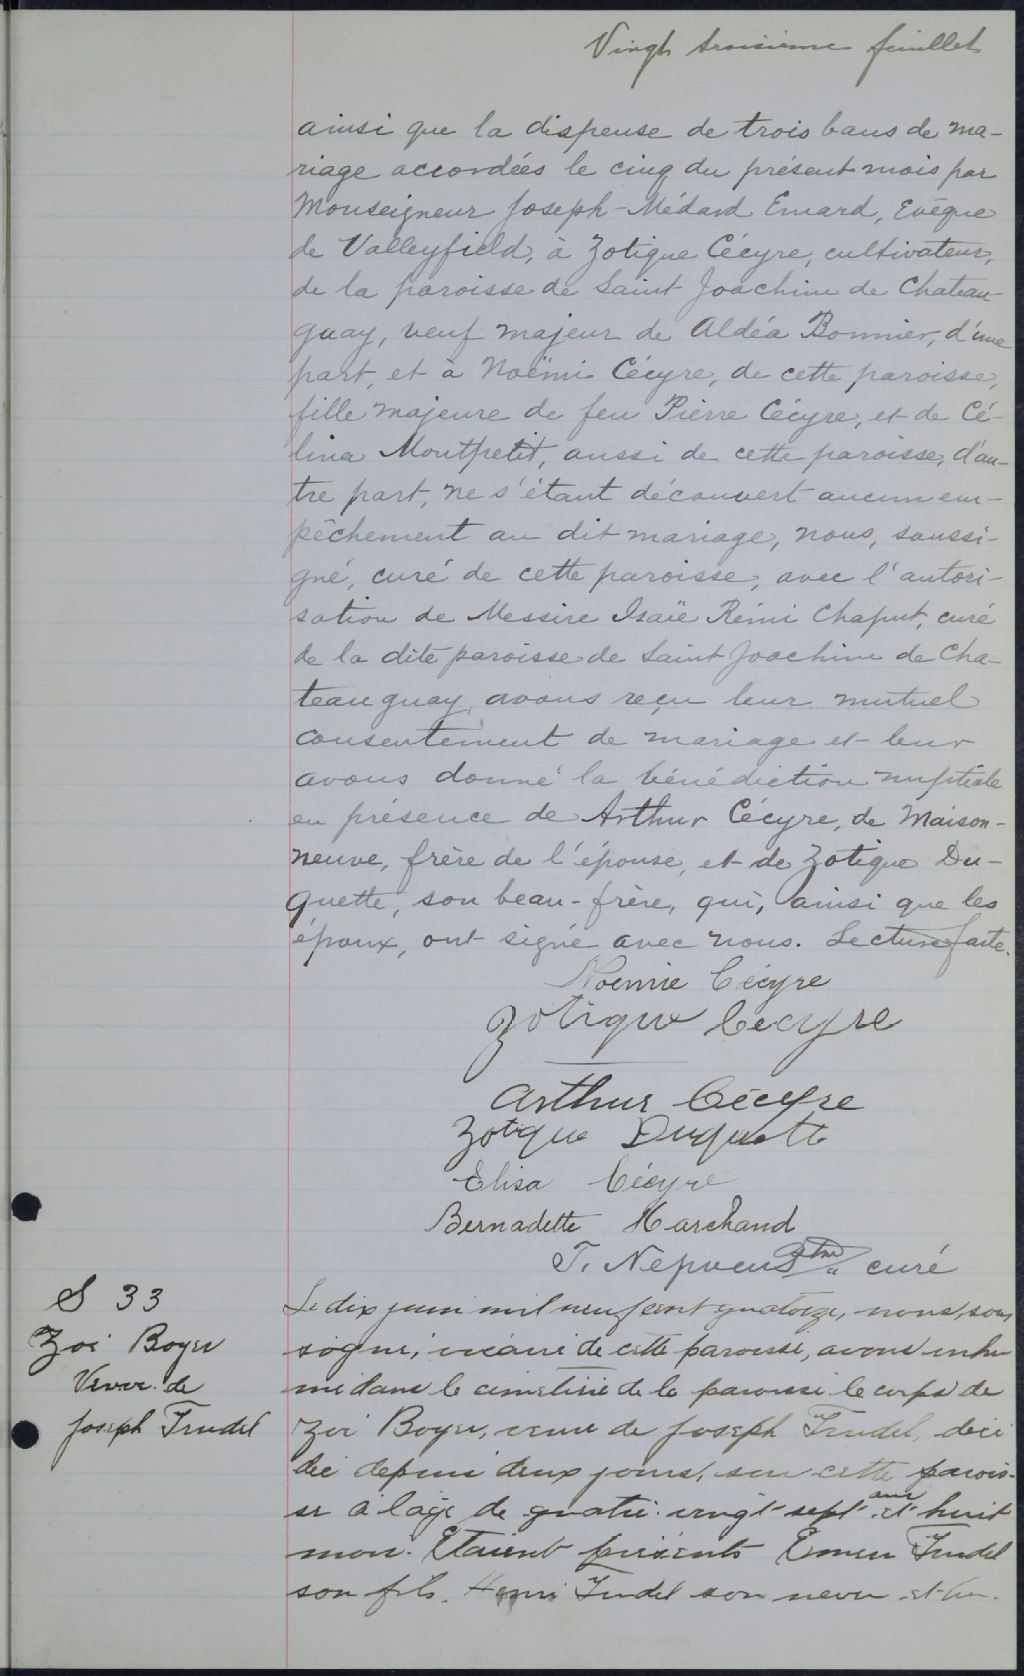 Vingt troisième feuillet
ainsi que la dispense de trois bans de ma-
riage accordées le cinq du présent mois par
Monseigneur Joseph-Médard Emard, Evêque
de Valleyfield, à Zotique Cécyre, cultivateur,
de la paroisse de Saint Joachim de Chateau-
guay, veuf majeur de Aldéa Bonnier, d'une
part, et à Noëmi Cécyre, de cette paroisse,
fille majeure de feu Pierre Cécyre, et de Cé-
lina Montpetit, aussi de cette paroisse, d'au-
tre part, ne s'étant découvert aucun em-
pêchement au dit mariage, nous, soussi-
gné, curé de cette paroisse, avec l'autori-
sation de Messire Isaïe Rémi Chaput, curé
de la dite paroisse de Saint Joachim de Cha-
teauguay, avons reçu leur mutuel
consentement de mariage et leur
avons donné la bénédiction nuptiale
en présence de Arthur Cécyre, de Maison-
neuve, frère de l'épouse, et de Zotique Du-
quette, son beau-frère, qui, ainsi que les
époux, ont signé avec nous. Lecture faite.
Noemie Cécyre
Zotique Cécyre
Arthur Cécyre
Zotique Duquette
Elisa Cécyre
Bernadette Marchand
T. Nepveu ptre curé
S 33
Zoé Boyer
Veuve de
Joseph Trudel
Le dix juin mil neuf cent quatorze, nous, sous
signé, vicaire de cette paroisse, avons inhu
mé dans le cimetière de la paroisse le corps de
Zoé Boyer, veuve de Joseph Trudel, décé
dée depuis deux jours, en cette parois-
se à l'âge de quatre-vingt-sept ans et huit
mois. Etaient présents Trudel
son fils, Henri Trudel son neveu et